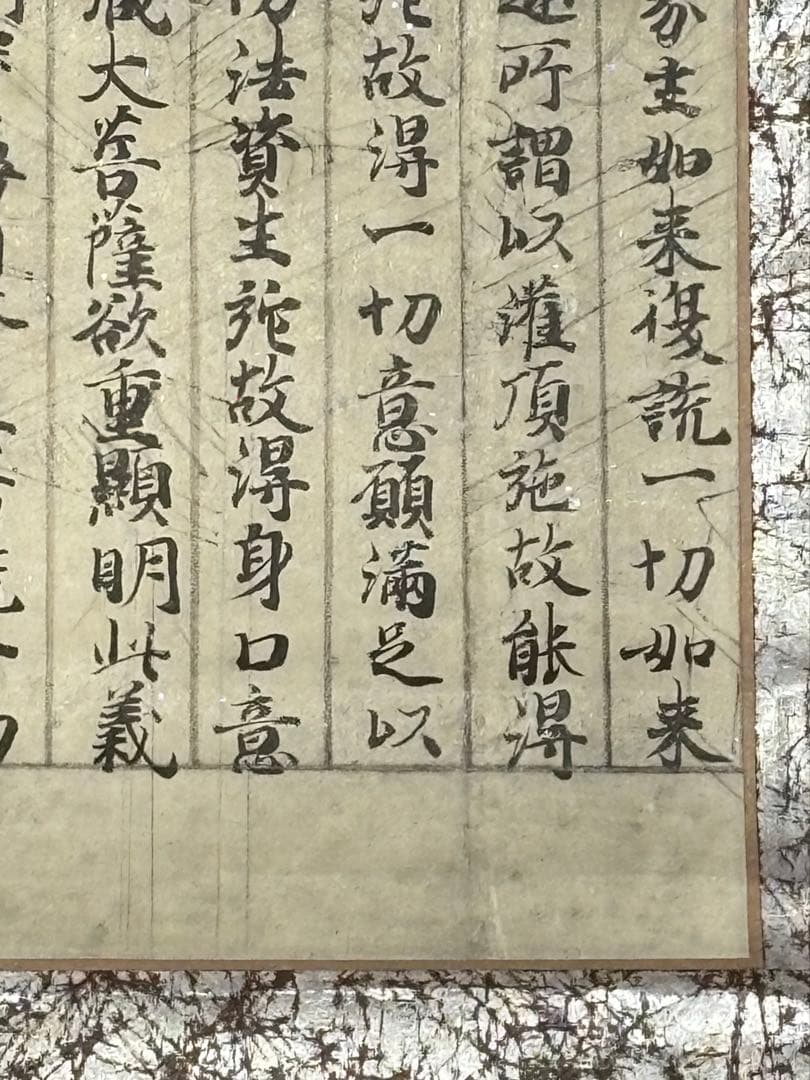 主如来復說一切如来
所謂以灌頂施故能得
施故得一切意願滿足以
切法資生施故得身口意
藏大菩薩欲重顯明此義